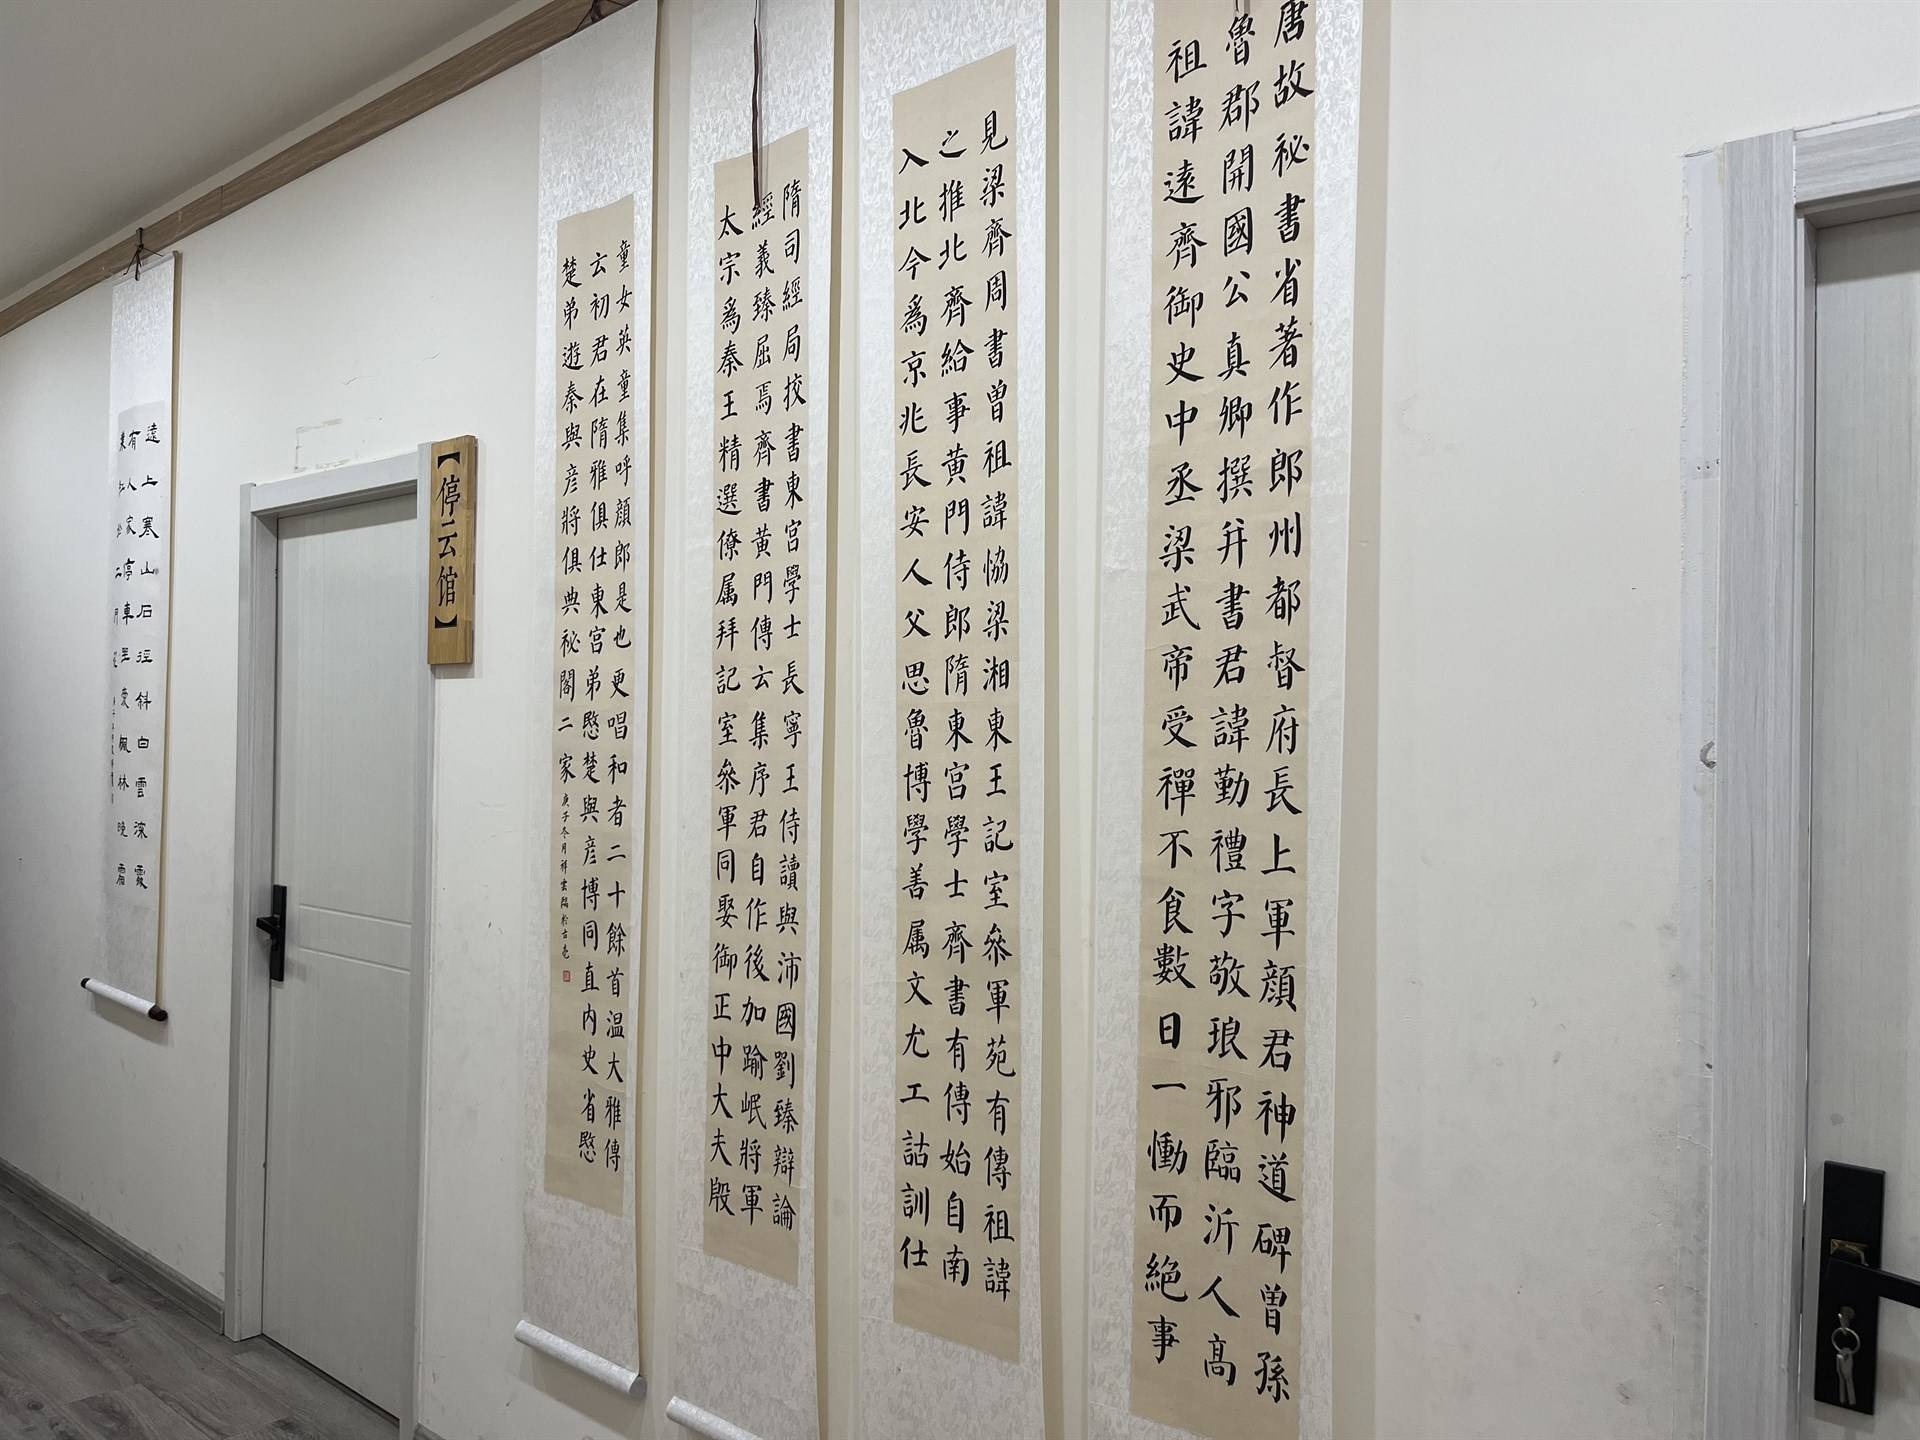 唐故祕書省著作郎州都督府長上軍顔君神道碑曾孫
魯郡開國公真卿撰并書君諱勤禮字敬琅邪臨沂人高
祖諱遠齊御史中丞梁武帝受禪不食數日一慟而絶事
見梁齊周書曾祖諱恊梁湘東王記室叅軍苑有傳祖諱
之推北齊給事黄門侍郎隋東宫學士齊書有傳始自南
入北今爲京兆長安人父思魯博學善属文尤工詁訓仕
隋司經局挍書東宫學士長寧王侍讀與沛國劉臻辯論
經義臻屈焉齊書黄門傳云集序君自作後加踰岷將軍
太宗爲秦王精選僚属拜記室叅軍同娶御正中大夫殷
童女英童集呼顔郎是也更唱和者二十餘首温大雅傳
云初君在隋雅俱仕東宫弟愍楚與彦博同直内史省愍
楚弟遊秦與彦將俱典祕閣二家
庚子冬月祥雲臨於古亳
【停云馆】
遠上寒山石径斜白雲深處
有人家停車坐愛楓林晚霜
葉红於二月花